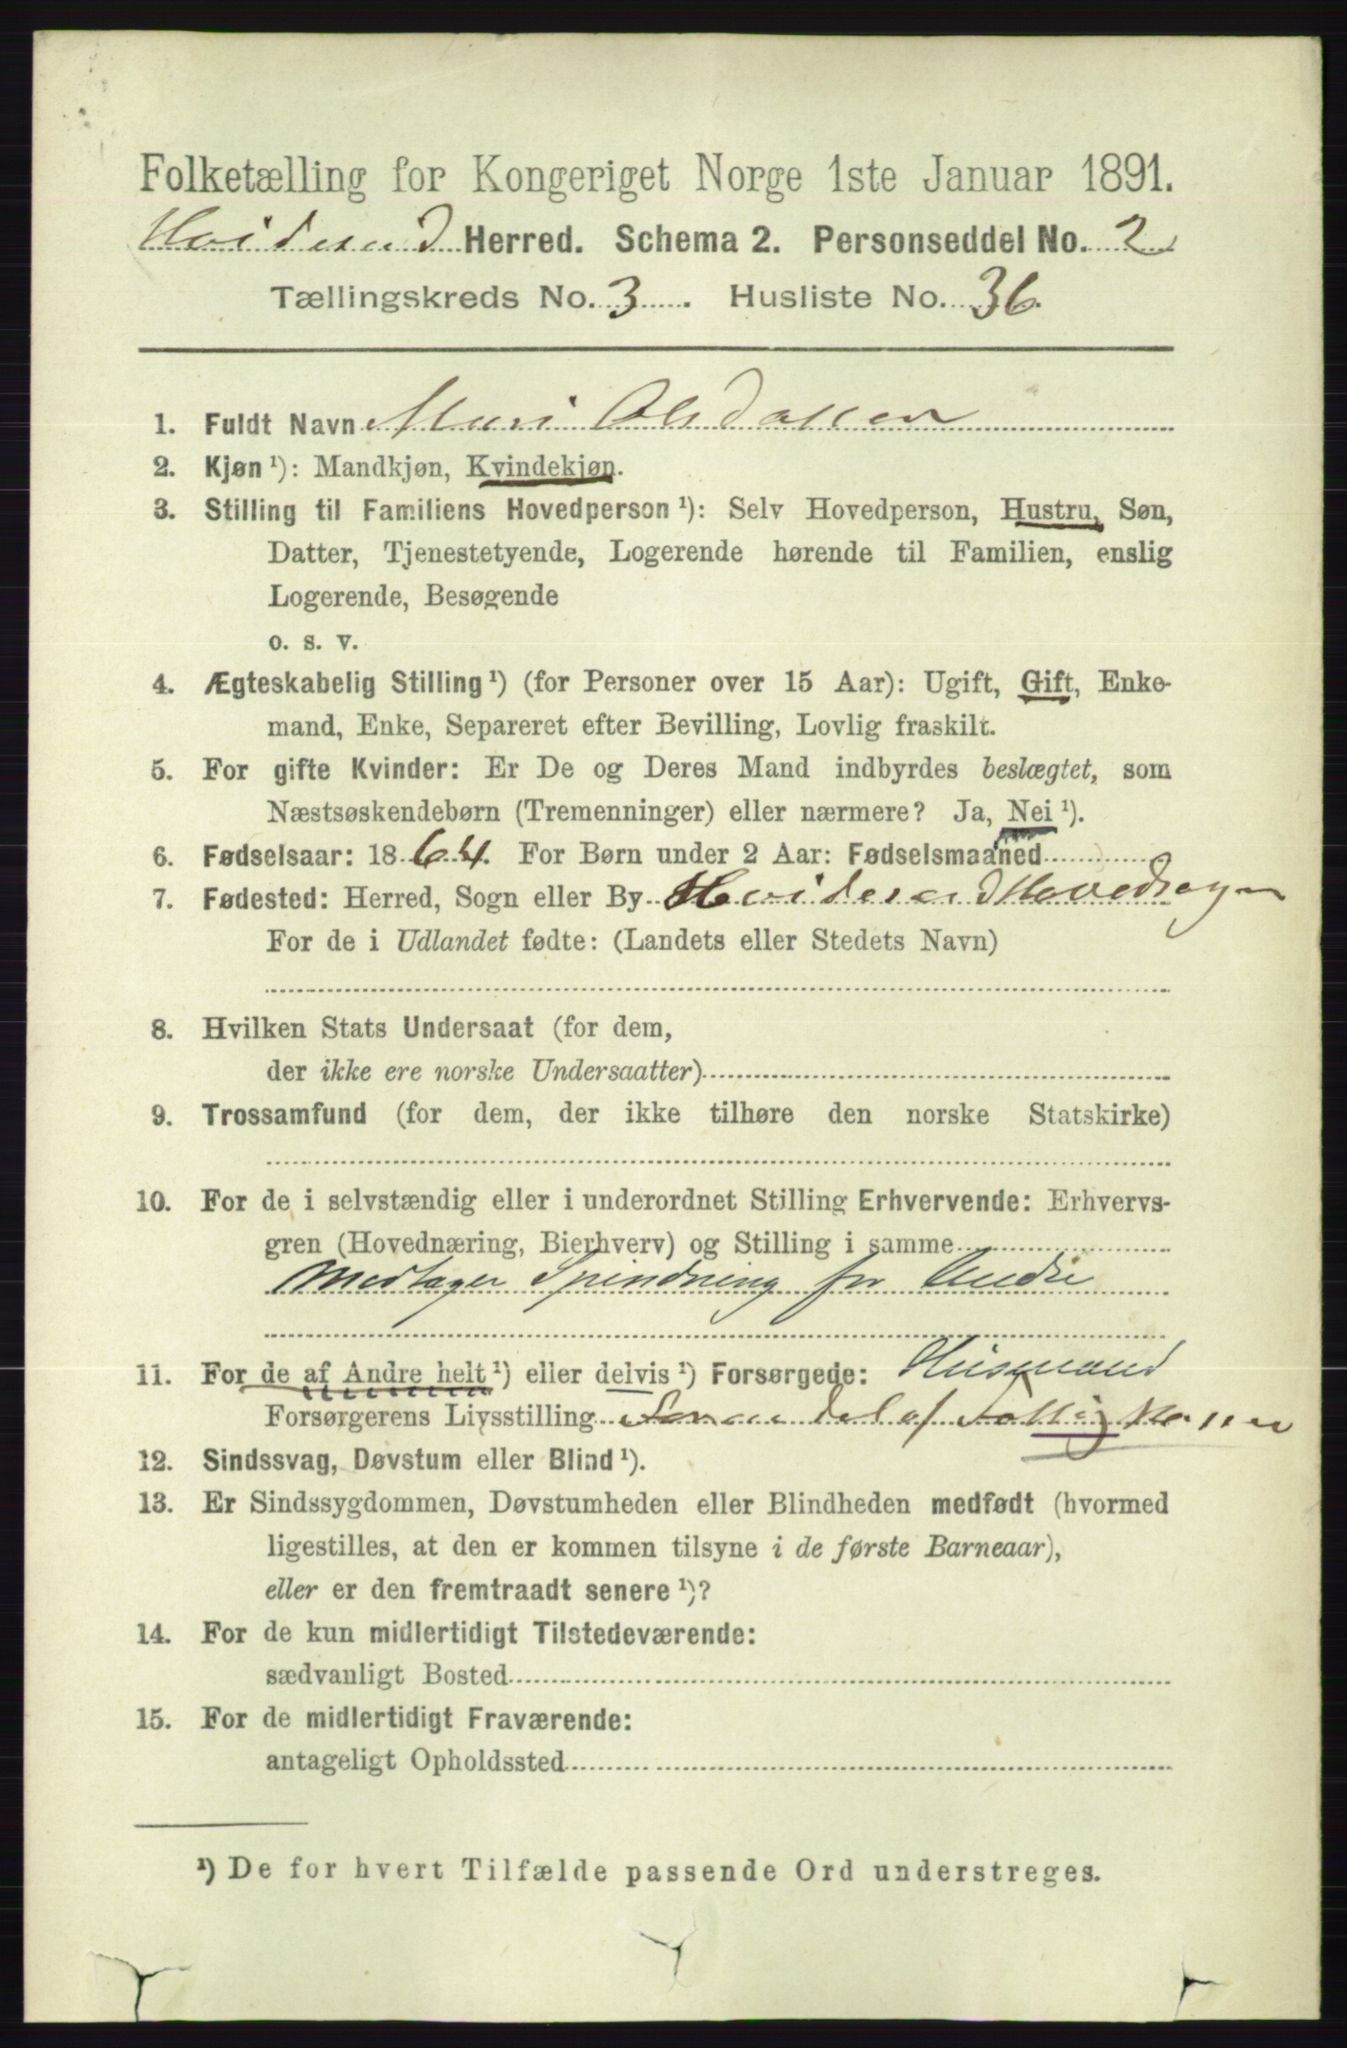 Folketælling for Kongeriget Norge 1ste Januar 1891.
Hviteseid Herred. Schema 2. Personseddel No. 2
Tællingskreds No. 3. Husliste No. 36.
1. Fuldt Navn Mari Olsdatter
2. Kjøn ¹): Mandkjøn, Kvindekjøn.
3. Stilling til Familiens Hovedperson ¹): Selv Hovedperson, Hustru, Søn,
Datter, Tjenestetyende, Logerende hørende til Familien, enslig
Logerende, Besøgende
o. s. v.
4. Ægteskabelig Stilling ¹) (for Personer over 15 Aar): Ugift, Gift, Enke-
mand, Enke, Separeret efter Bevilling, Lovlig fraskilt.
5. For gifte Kvinder: Er De og Deres Mand indbyrdes beslægtet, som
Næstsøskendebørn (Tremenninger) eller nærmere? Ja, Nei ¹).
6. Fødselsaar: 1864. For Børn under 2 Aar: Fødselsmaaned
7. Fødested: Herred, Sogn eller By
For de i Udlandet fødte: (Landets eller Stedets Navn)
8. Hvilken Stats Undersaat (for dem,
der ikke ere norske Undersaatter)
9. Trossamfund (for dem, der ikke tilhøre den norske Statskirke)
10. For de i selvstændig eller i underordnet Stilling Erhvervende: Erhvervs-
gren (Hovednæring, Bierhverv) og Stilling i samme
Modtager Spindning for Andre
11. For de af Andre helt ¹) eller delvis ¹) Forsørgede: Husmand
Forsørgerens Livsstilling
12. Sindssvag, Døvstum eller Blind ¹).
13. Er Sindssygdommen, Døvstumheden eller Blindheden medfødt (hvormed
ligestilles, at den er kommen tilsyne i de første Barneaar),
eller er den fremtraadt senere ¹)?
14. For de kun midlertidigt Tilstedeværende:
sædvanligt Bosted
15. For de midlertidigt Fraværende:
antageligt Opholdssted
¹) De for hvert Tilfælde passende Ord understreges.